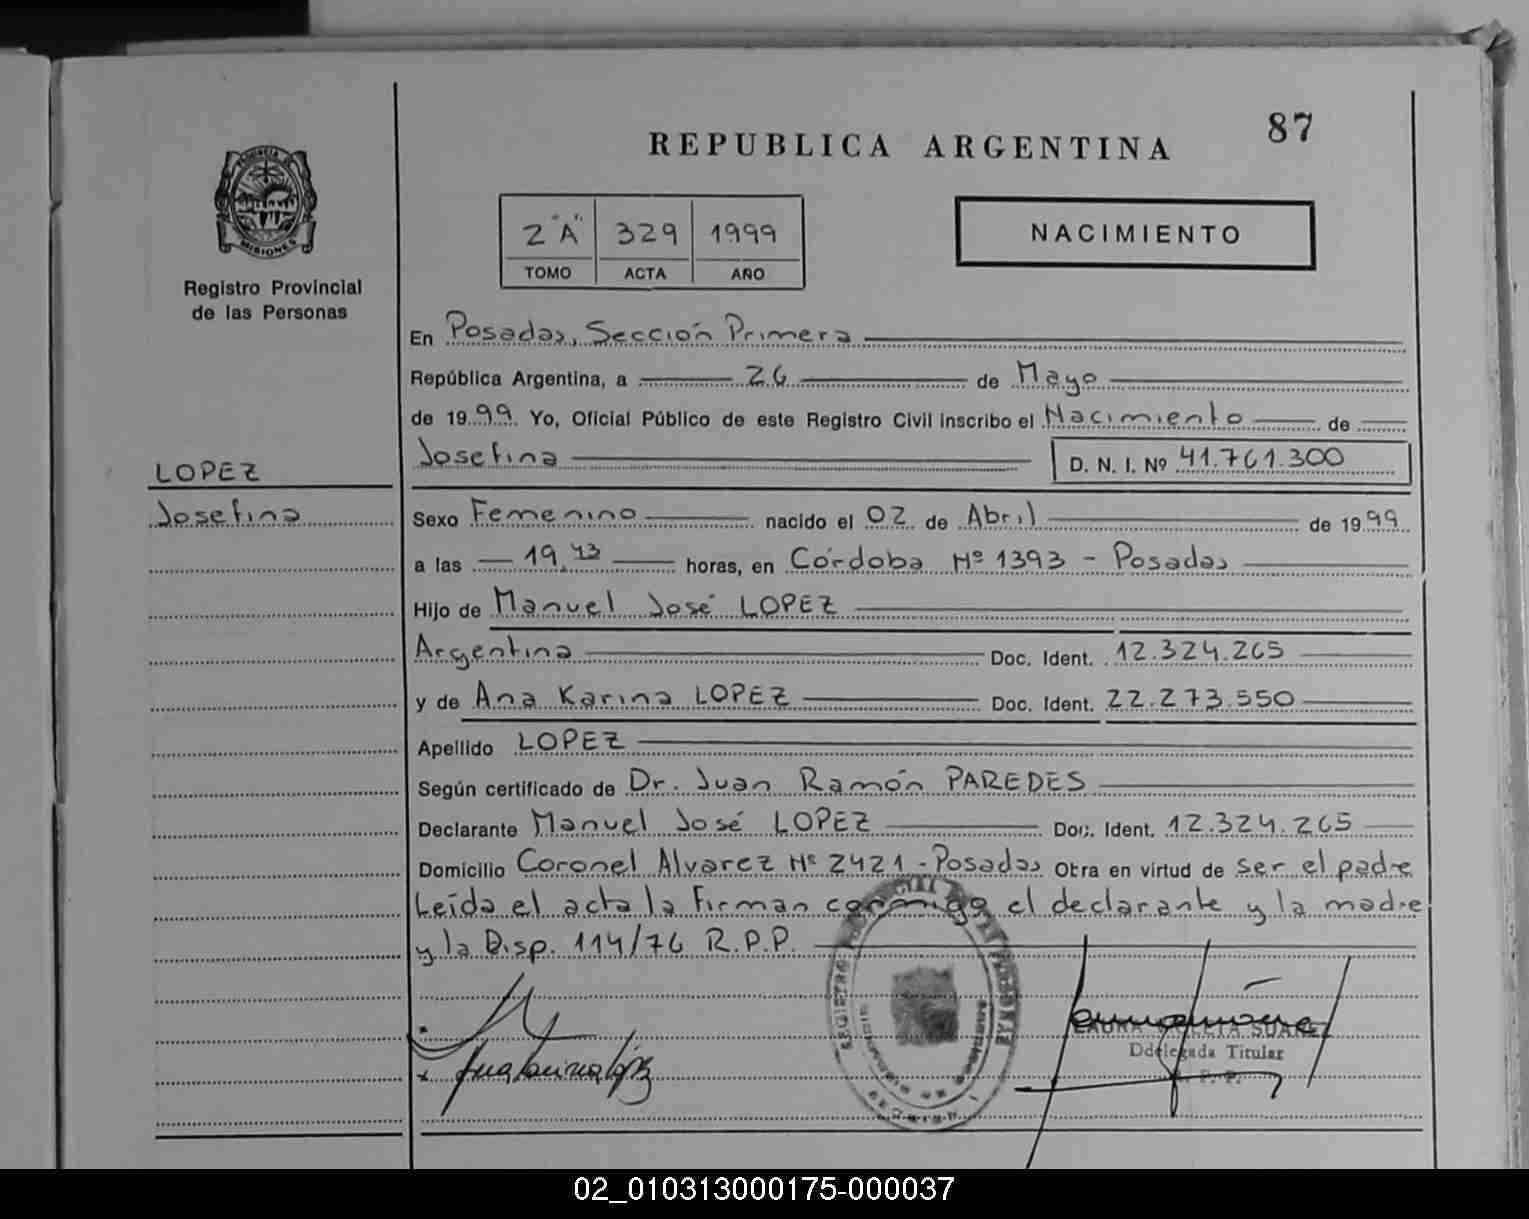 87
REPUBLICA ARGENTINA
PROVINCIA DE
MISIONES
Registro Provincial
de las Personas
2 "A" 329 1999
TOMO ACTA AÑO
NACIMIENTO
En Posadas, Sección Primera
República Argentina, a 26 de Mayo
de 1999 Yo, Oficial Público de este Registro Civil inscribo el Nacimiento de
Josefina D. N. I. Nº 41.761.300
LOPEZ
Josefina
Sexo Femenino nacido el 02 de Abril de 1999
a las 19,43 horas, en Córdoba Nº 1393 - Posadas
Hijo de Manuel José LOPEZ
Argentina Doc. Ident. 12.324.265
y de Ana Karina LOPEZ Doc. Ident. 22.273.550
Apellido LOPEZ
Según certificado de Dr. Juan Ramón PAREDES
Declarante Manuel José LOPEZ Doc. Ident. 12.324.265
Domicilio Coronel Alvarez Nº 2421 - Posadas Obra en virtud de ser el padre
Leída el acta la firman conmigo el declarante y la madre
y la Disp. 114/76 R.P.P.
Ana Karina López
LAURA SUAREZ
Delegada Titular
R. P. P.
02_010313000175-000037